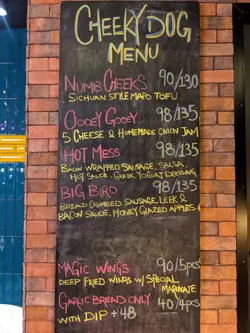 CHEEKY DOG
MENU
NUMB CHEEKS 90/130
SICHUAN STYLE MAPO TOFU
OOEY GOOEY 98/135
5 CHEESE & HOMEMADE ONION JAM
HOT MESS 98/135
BACON WRAPPED SAUSAGE, SALSA,
HOT SAUCE - GREEK YOGURT DRESSING
BIG BIRD 98/135
BREAD CRUMBED SAUSAGE, LEEK &
BACON SAUCE, HONEY GLAZED APPLES
MAGIC WINGS 90/5pcs
DEEP FRIED WINGS w/ SPECIAL
MARINATE
GARLIC BREAD ONLY 40/4pcs
WITH DIP +48